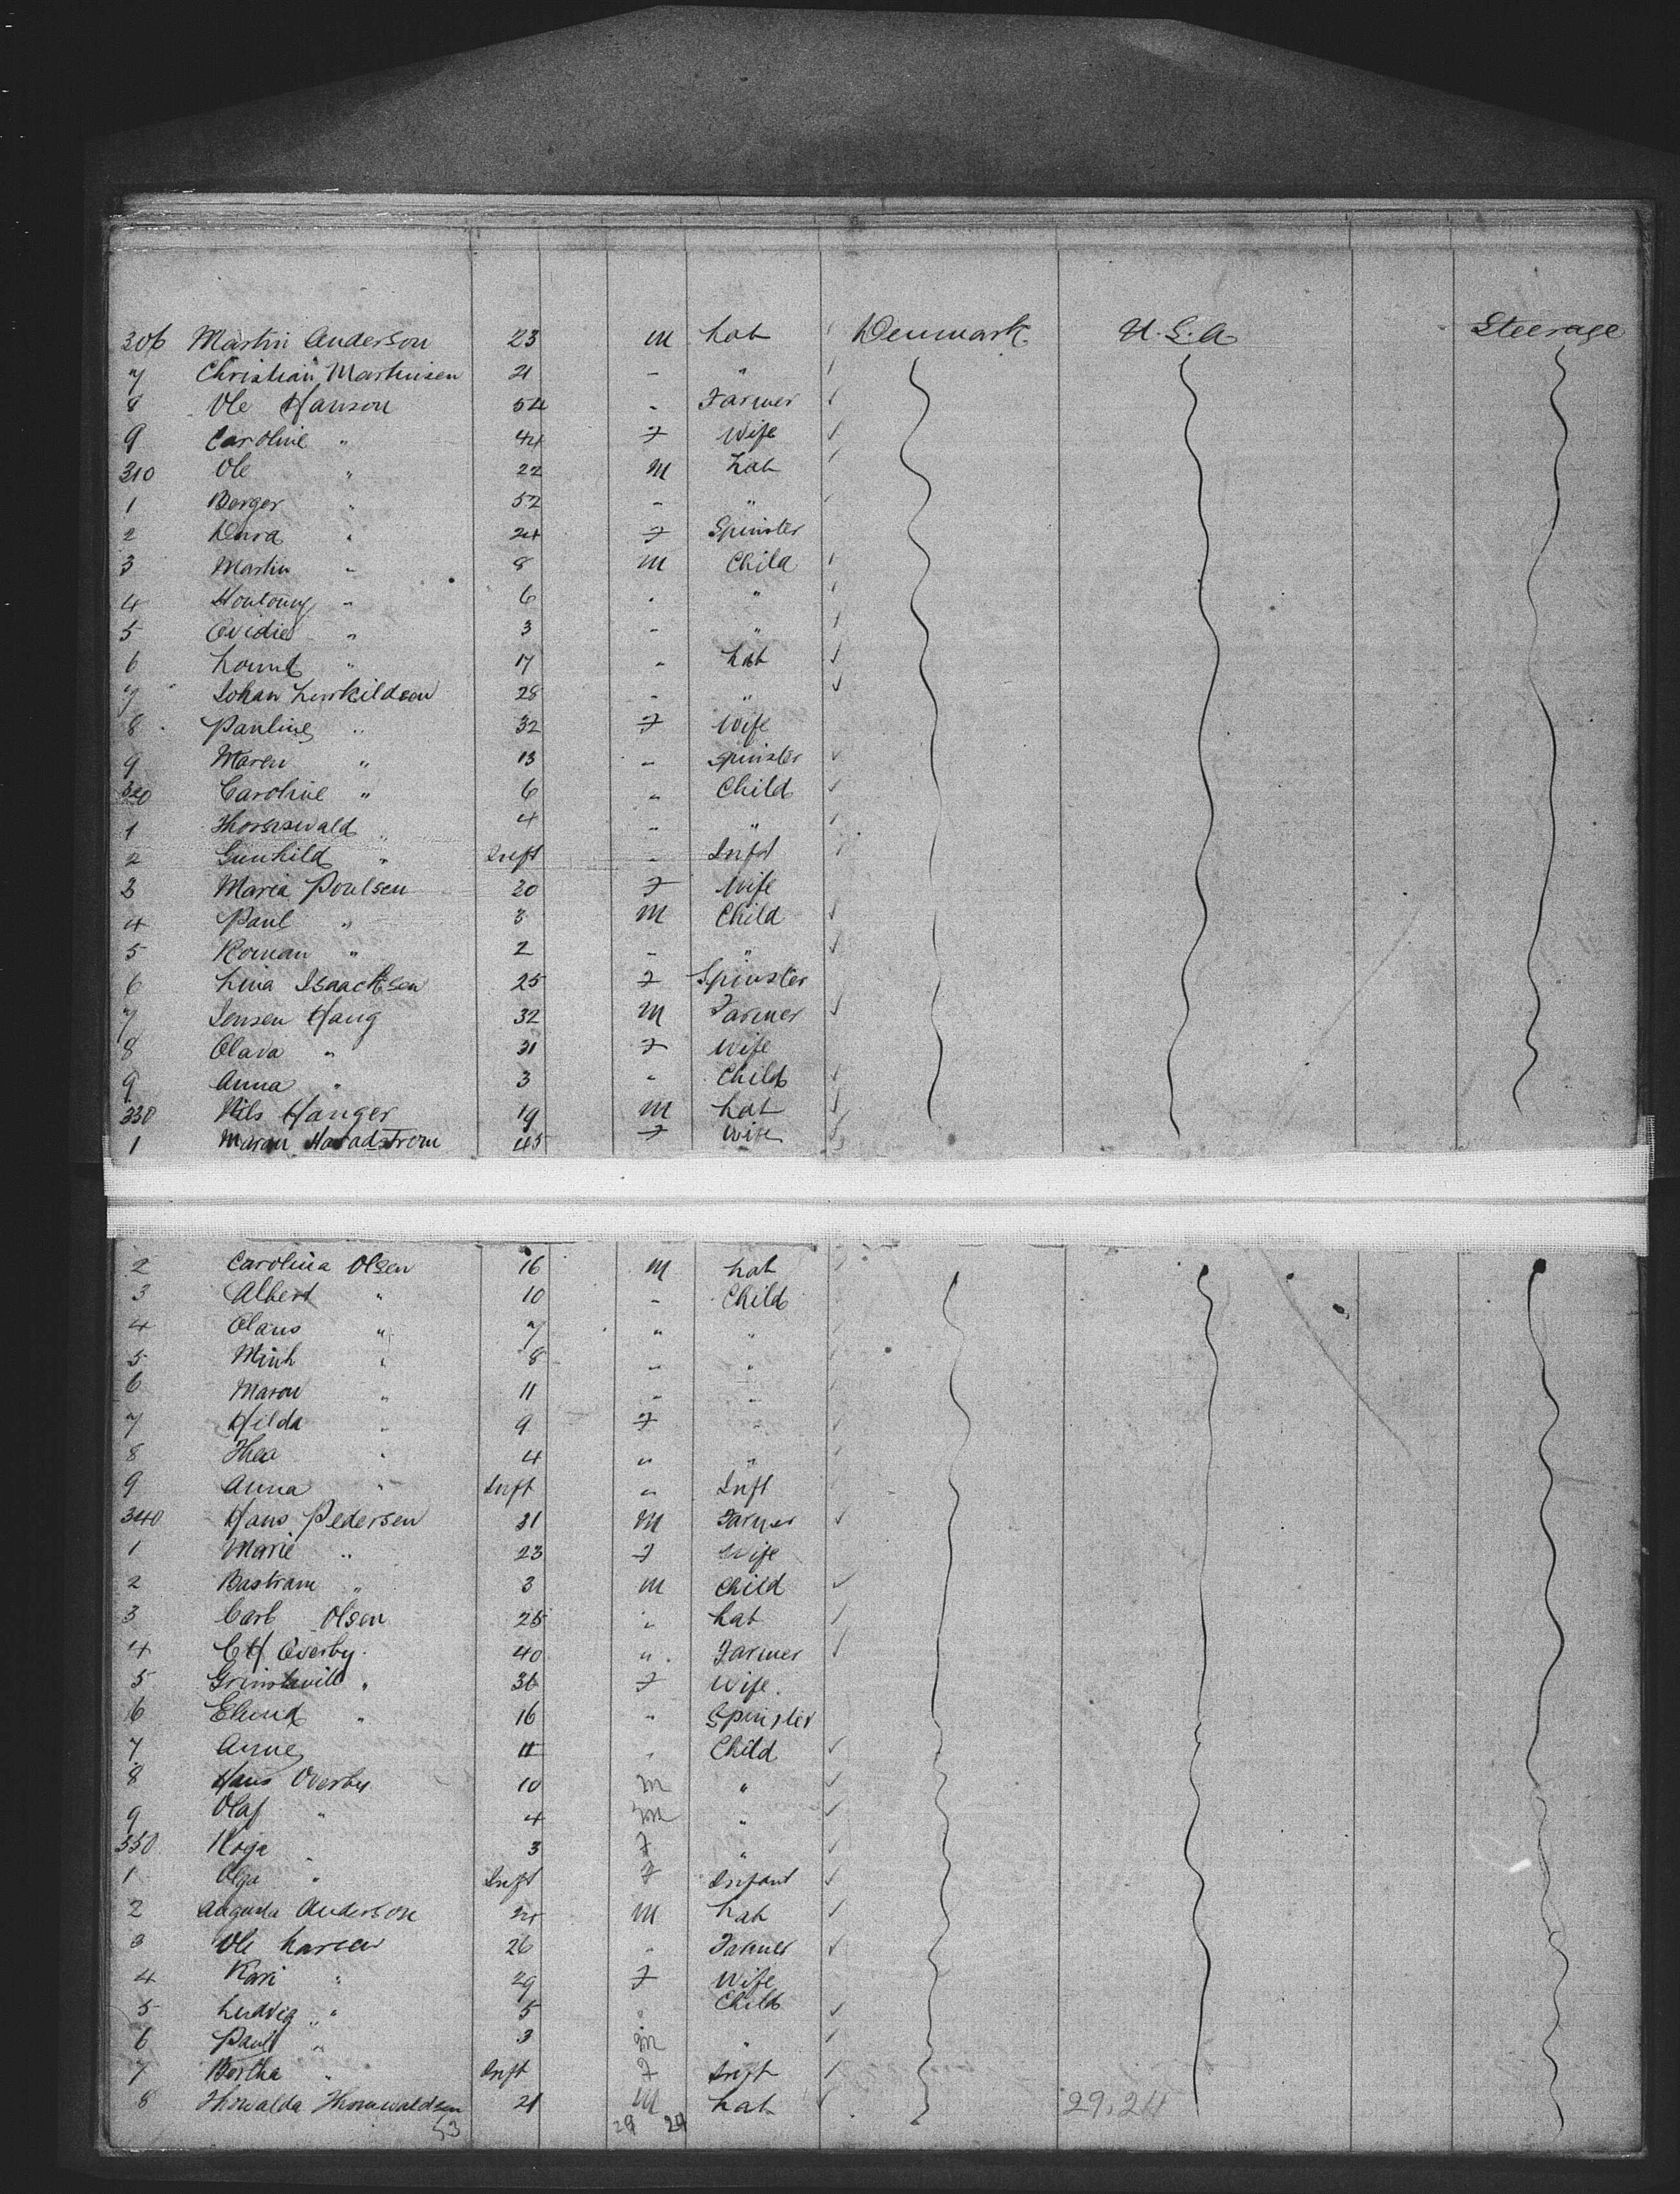 306 Martin Anderson 23 M Lab Denmark U.S.A Steerage
7 Christian Martinsen 21 - "
8 Ole Hanson 54 - Farmer
9 Caroline " 44 F Wife
310 Ole " 22 M Lab
1 Berger " 52 - "
2 " 24 F Spinster
3 Martin " 8 M Child
4 " 6 - "
5 " 3 - "
6 " 17 - Lab
7 Johan 28 - "
8 Pauline " 32 F Wife
9 Maren " 13 - Spinster
320 Caroline " 6 " Child
1 " 4 " "
2 Gunhild " Inft - Inft
3 Maria Poulsen 20 F Wife
4 Paul " 3 M Child
5 Roman " 2 - "
6 Lina Isaacksen 25 F Spinster
7 Jensen Haug 32 M Farmer
8 Olava " 31 F Wife
9 Anna " 3 " Child
330 Nils Hanger 19 M Lab
1 Maran 45 F Wife
2 Carolina Olsen 16 M Lab
3 Albert " 10 - Child
4 Olaus " 7 " "
5 " 8 " "
6 Maron " 11 " "
7 Hilda " 9 F "
8 Thea " 4 " "
9 Anna " Inft " Inft
340 Hans Pedersen 31 M Farmer
1 Marie " 23 F Wife
2 Bastram " 3 M Child
3 Carl Olsen 25 " Lab
4 CH Overby 40 " Farmer
5 " 36 F Wife
6 " 16 " Spinster
7 Anne 11 " Child
8 Hans Overby 10 M "
9 Olaf " 4 M "
350 3 F "
1 Olga " Inft F Infant
2 Augusta Anderson M Lab
3 Ole Larsen 26 " Farmer
4 Kari " 29 F Wife
5 Ludvig " 5 " Child
6 Paul " 3 M "
7 Bertha " Inft F Inft
8 21 M Lab 29.24
53 29 29